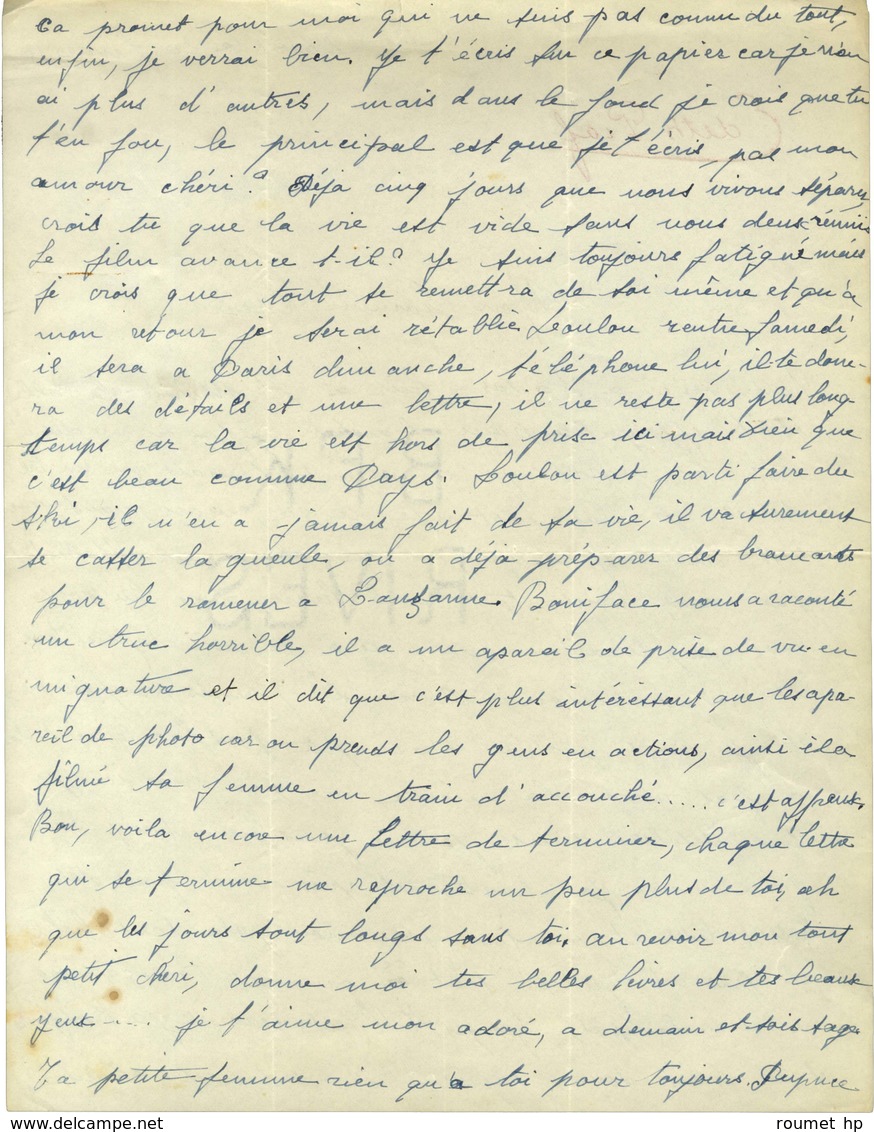 ca promet pour moi qui ne suis pas connu du tout,
enfin, je verrai bien. Je t'écris sur ce papier car je n'en
ai plus d'autres, mais dans le fond je crois que tu
t'en fou, le principal est que je t'écris, pas mon
amour chéri? Déja cinq jours que nous vivons séparés,
crois tu que la vie est vide sans nous deux réunis
Le film avance t-il? Je suis toujours fatigué mais
je crois que tout se remettra de soi même et qu'à
mon retour je serai rétablie Loulou rentre samedi,
il sera a Paris dimanche, téléphone lui, il te donne-
ra des détails et une lettre, il ne reste pas plus long
temps car la vie est hors de prise ici mais Dieu que
c'est beau comme Pays. Loulou est parti faire du
ski, il n'en a jamais fait de sa vie, il va surement
se casser la gueule, on a déjà préparer des brancards
pour le ramener a Lausanne. Boniface nous a raconté
un truc horrible, il a un apareil de prise de vu en
mignature et il dit que c'est plus intéressant que les apa-
reil de photo car on prends les gens en actions, ainsi il a
filmé sa femme en train d'accouché..... c'est affreux.
Bon, voila encore une lettre de terminer, chaque lettre
qui se termine me raproche un peu plus de toi, ah
que les jours sont longs sans toi. au revoir mon tout
petit chéri, donne moi tes belles lèvres et tes beaux
yeux.... je t'aime mon adoré, a demain et sois sage
Ta petite femme rien qu'a toi pour toujours.
roumet hp